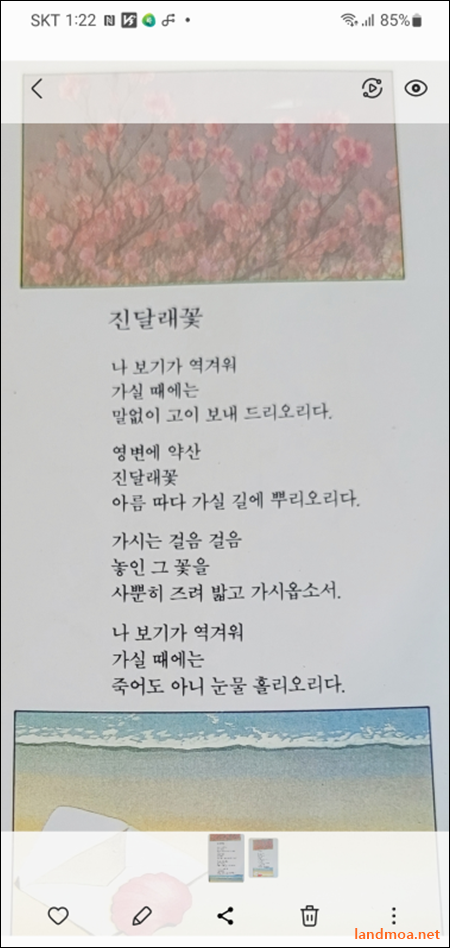 SKT 1:22
85%
진달래꽃
나 보기가 역겨워
가실 때에는
말없이 고이 보내 드리오리다.
영변에 약산
진달래꽃
아름 따다 가실 길에 뿌리오리다.
가시는 걸음 걸음
놓인 그 꽃을
사뿐히 즈려 밟고 가시옵소서.
나 보기가 역겨워
가실 때에는
죽어도 아니 눈물 흘리오리다.
landmoa.net